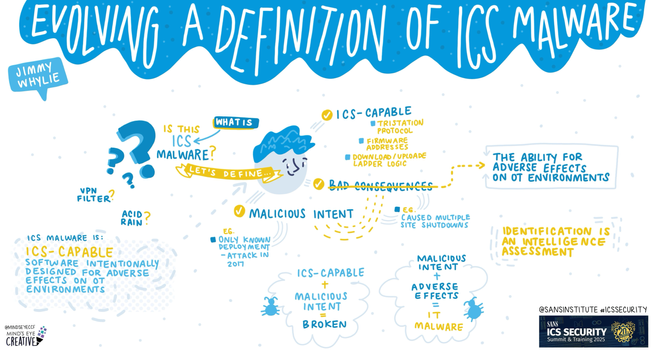 EVOLVING A DEFINITION OF ICS MALWARE
JIMMY
WHYLIE
IS THIS
ICS
MALWARE?
WHAT IS
LET'S DEFINE...
VPN
FILTER?
ACID
RAIN?
ICS MALWARE IS:
ICS-CAPABLE
SOFTWARE INTENTIONALLY
DESIGNED FOR ADVERSE
EFFECTS ON OT
ENVIRONMENTS
ICS-CAPABLE
TRISTATION
PROTOCOL
FIRMWARE
ADDRESSES
DOWNLOAD/UPLOADE
LADDER LOGIC
BAD CONSEQUENCES
EG.
CAUSED MULTIPLE
SITE SHUTDOWNS
THE ABILITY FOR
ADVERSE EFFECTS
ON OT ENVIRONMENTS
MALICIOUS INTENT
EG.
ONLY KNOWN
DEPLOYMENT
-ATTACK IN
2017
IDENTIFICATION IS
AN INTELLIGENCE
ASSESSMENT
ICS-CAPABLE
+
MALICIOUS
INTENT
=
BROKEN
MALICIOUS
INTENT
+
ADVERSE
EFFECTS
=
IT
MALWARE
@MINDSEYECCF
MIND'S EYE
CREATIVE
@SANSINSTITUTE #ICSSECURITY
SANS
ICS SECURITY
Summit & Training 2025